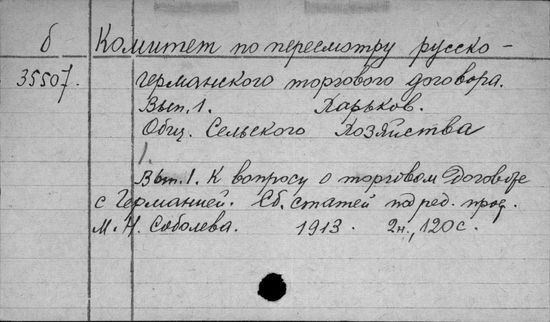 б Комитет по пересмотру русско-
35507. германского торгового договора.
Вып. 1. Харьков.
Общ. Сельского Хозяйства
1.
Вып. 1. К вопросу о торговом Договоре
с Германией. Сб. статей под ред. проф.
М. Н. Соболева. 1913. 2н., 120 с.